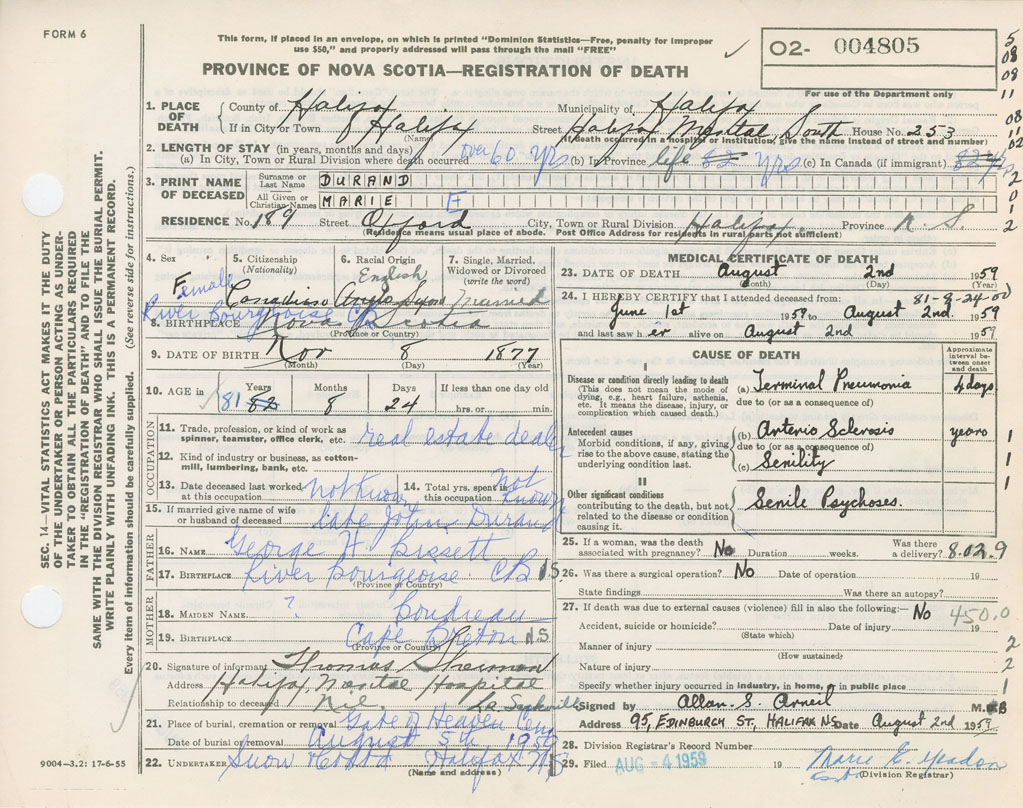 FORM 6
This form, if placed in an envelope, on which is printed "Dominion Statistics—Free, penalty for improper
use $50," and properly addressed will pass through the mail "FREE"
PROVINCE OF NOVA SCOTIA—REGISTRATION OF DEATH
O2- 004805
For use of the Department only
1. PLACE OF DEATH
County of Halifax Municipality of Halifax
If in City or Town Halifax Street Halifax Mental South House No. 253
(Name) (If death occurred in a hospital or institution, give the name instead of street and number)
2. LENGTH OF STAY (in years, months and days)
(a) In City, Town or Rural Division where death occurred over 60 yrs (b) In Province life 82 yrs (c) In Canada (if immigrant)
3. PRINT NAME OF DECEASED
Surname or Last Name DURAND
All Given or Christian Names MARIE E
RESIDENCE No. 189 Street Oxford City, Town or Rural Division Halifax Province N.S.
(Residence means usual place of abode. Post Office Address for residents in rural parts not sufficient)
4. Sex Female
5. Citizenship (Nationality) Canadian
6. Racial Origin English Anglo
7. Single, Married, Widowed or Divorced (write the word) married
River Bourgeoise CB
8. BIRTHPLACE Nova Scotia
(Province or Country)
9. DATE OF BIRTH Nov 8 1877
(Month) (Day) (Year)
10. AGE in Years 81 82 Months 8 Days 24 If less than one day old hrs. or min.
OCCUPATION
11. Trade, profession, or kind of work as spinner, teamster, office clerk, etc. real estate dealer
12. Kind of industry or business, as cotton-mill, lumbering, bank, etc.
13. Date deceased last worked at this occupation not know
14. Total yrs. spent in this occupation not known
15. If married give name of wife or husband of deceased late John Durand
FATHER
16. NAME George H Bissett
17. BIRTHPLACE River Bourgeoise CB NS
(Province or Country)
MOTHER
18. MAIDEN NAME ? Boudreau
19. BIRTHPLACE Cape Breton NS
(Province or Country)
20. Signature of informant Thomas Sherman
Address Halifax Mental Hospital
Relationship to deceased Nil
21. Place of burial, cremation or removal Gate of Heaven Cem
Date of burial or removal August 5th 1959
22. UNDERTAKER Snow Halifax NS
(Name and address)
MEDICAL CERTIFICATE OF DEATH
23. DATE OF DEATH August 2nd 1959
(Month) (Day) (Year)
81-8-24-00
24. I HEREBY CERTIFY that I attended deceased from:
June 1st 1959 to August 2nd 1959
and last saw her alive on August 2nd 1959
CAUSE OF DEATH
Approximate interval between onset and death
I
Disease or condition directly leading to death
(This does not mean the mode of dying, e.g., heart failure, asthenia, etc. It means the disease, injury, or complication which caused death.)
(a) Terminal Pneumonia 4 days
due to (or as a consequence of)
Antecedent causes
Morbid conditions, if any, giving rise to the above cause, stating the underlying condition last.
(b) Arterio Sclerosis years
due to (or as a consequence of)
(c) Senility
II
Other significant conditions
contributing to the death, but not related to the disease or condition causing it.
Senile Psychoses.
25. If a woman, was the death associated with pregnancy? No Duration weeks. Was there a delivery? 8.02.9
26. Was there a surgical operation? No Date of operation 19
State findings Was there an autopsy?
27. If death was due to external causes (violence) fill in also the following:— No 450.0
Accident, suicide or homicide? Date of injury 19
(State which)
Manner of injury
(How sustained)
Nature of injury
Specify whether injury occurred in industry, in home, or in public place
Signed by Allan. S. Arneil M.B
Address 95, EDINBURGH ST, HALIFAX NS Date August 2nd 1959
28. Division Registrar's Record Number
29. Filed AUG -4 1959 19 Marie E.
(Division Registrar)
9004—3.2: 17-6-55
SEC. 14—VITAL STATISTICS ACT MAKES IT THE DUTY
OF THE UNDERTAKER OR PERSON ACTING AS UNDER-
TAKER TO OBTAIN ALL THE PARTICULARS REQUIRED
IN THE "REGISTRATION OF DEATH" AND TO FILE THE
SAME WITH THE DIVISION REGISTRAR WHO SHALL ISSUE THE BURIAL PERMIT.
WRITE PLAINLY WITH UNFADING INK. THIS IS A PERMANENT RECORD.
Every item of information should be carefully supplied. (See reverse side for instructions.)
5
08
08
11
08
11
02
2
0
1
2
1
1
1
2
2
1